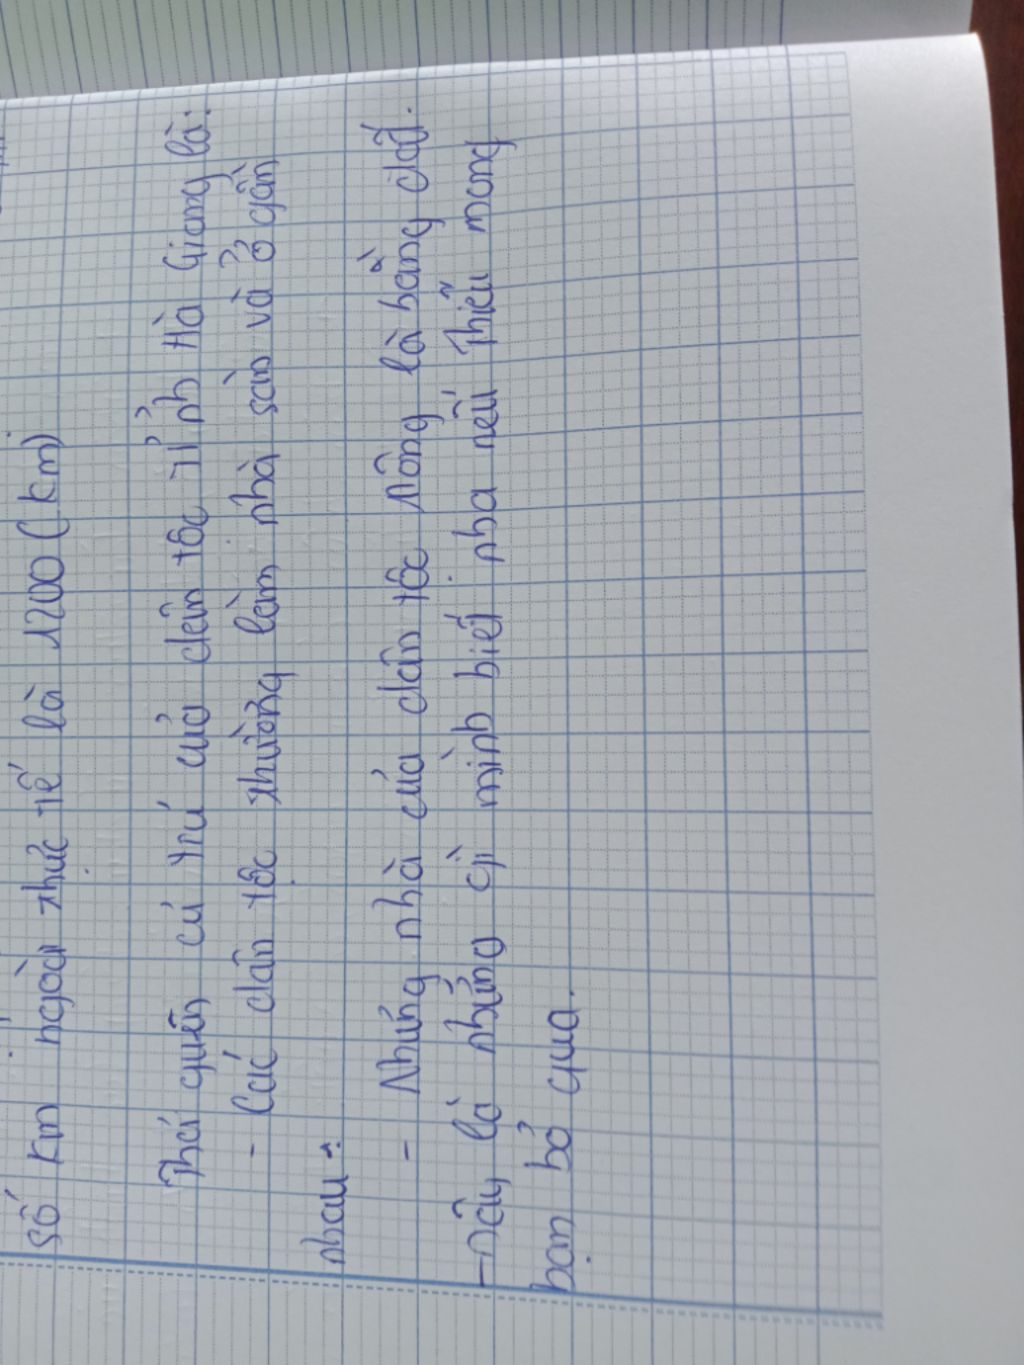 số km ngoài thực tế là 1200 (km)
Thói quen cư trú của dân tộc Tỉnh Hà Giang là:
- Các dân tộc thường làm nhà sàn và ở gần
nhau.
- Những nhà của dân tộc Nông là bằng đất.
- Đây là những gì mình biết nha nếu thiếu mong
bạn bỏ qua.